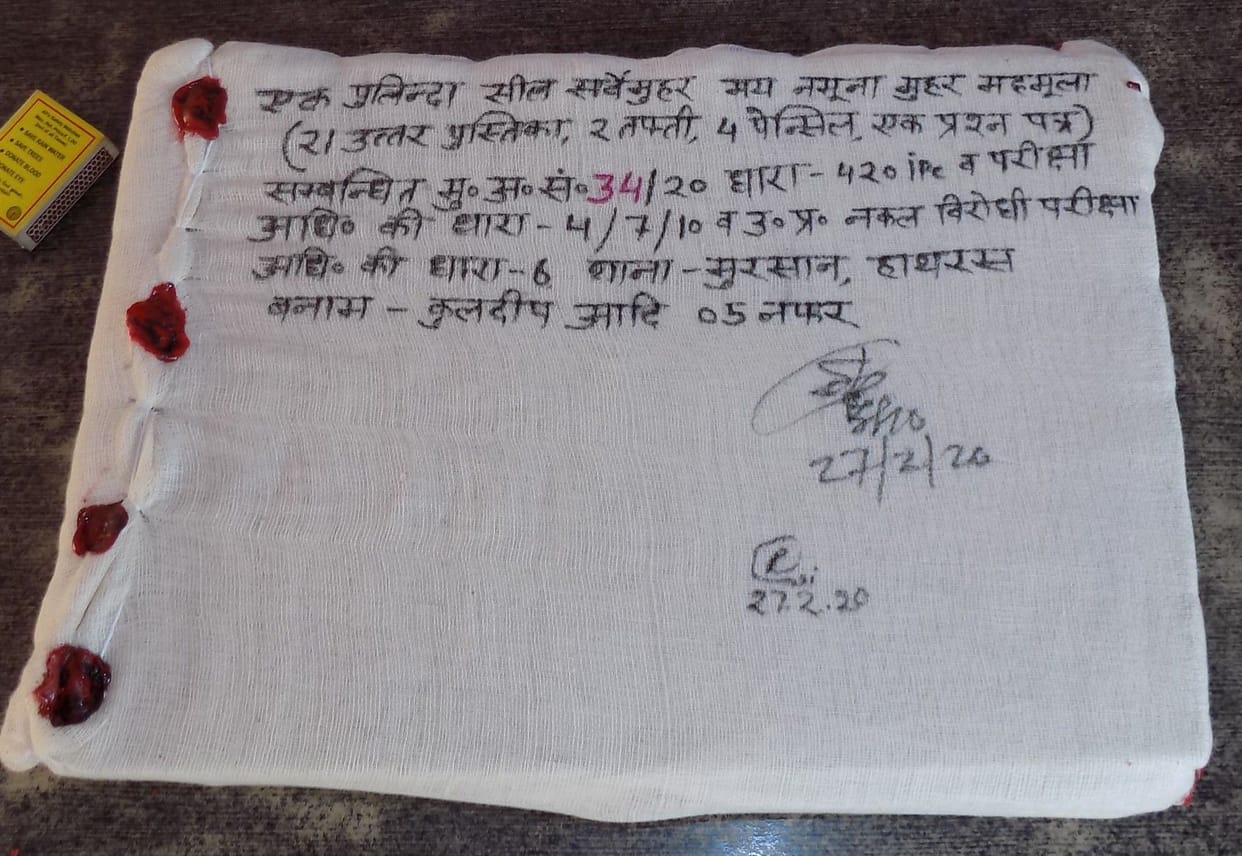 एक पुलिन्दा सील सर्वेमुहर मय नमूना मुहर महमूला
(21 उत्तर पुस्तिका, 2 तफ्ती, 4 पेन्सिल, एक प्रश्न पत्र)
सम्बन्धित मु० अ० सं० 34/20 धारा - 420 iPc व परीक्षा
अधि० की धारा - 4/7/10 व उ० प्र० नकल विरोधी परीक्षा
अधि० की धारा - 6 थाना - मुरसान, हाथरस
बनाम - कुलदीप आदि 05 नफर
27/2/20
27.2.20
• SAVE RAIN WATER
• SAVE TREES
• DONATE BLOOD